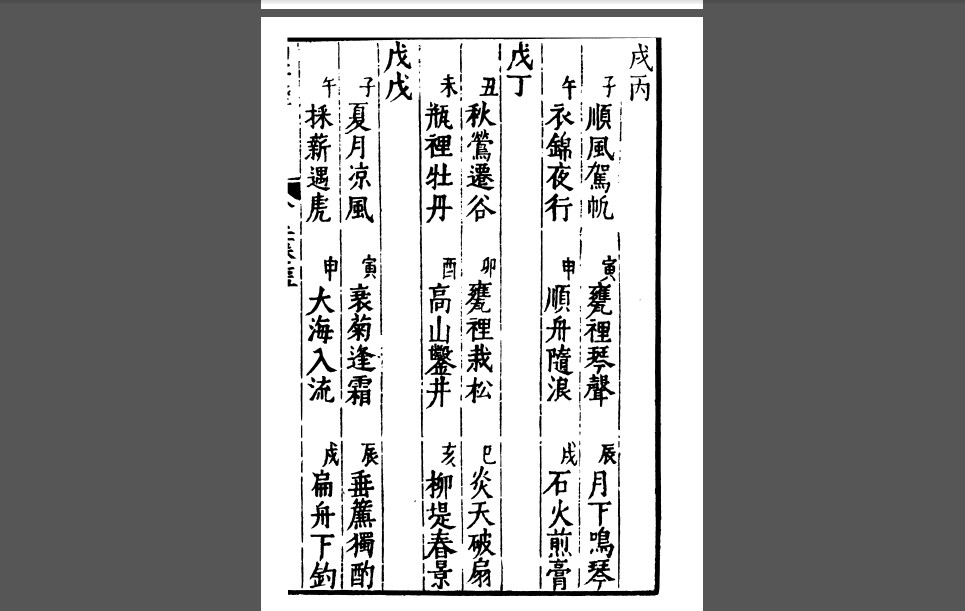 戌丙
子 順風駕帆 寅 甕裡琴聲 辰 月下鳴琴
午 衣錦夜行 申 順舟隨浪 戌 石火煎膏
戊丁
丑 秋鶯遷谷 卯 甕裡栽松 巳 炎天破扇
未 瓶裡牡丹 酉 高山鑿井 亥 柳堤春景
戊戊
子 夏月凉風 寅 衰菊逢霜 辰 垂簾獨酌
午 採薪遇虎 申 大海入流 戌 扁舟下釣